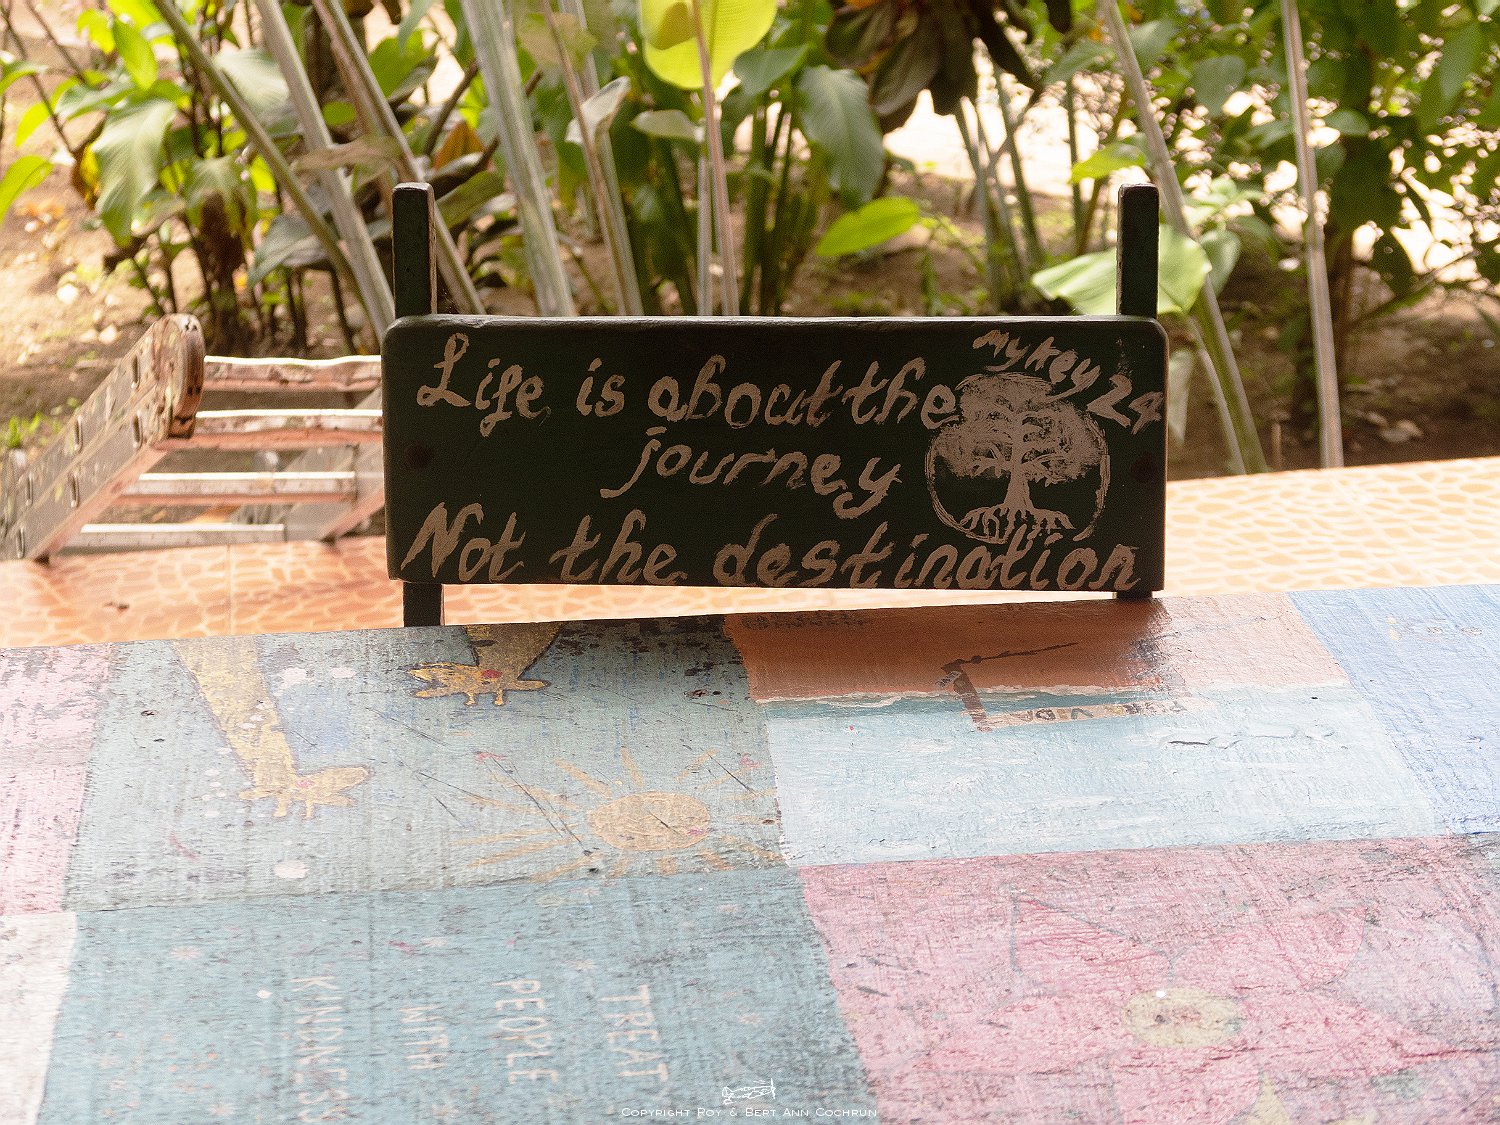 Life is about the
mykey 24
journey
Not the destination
TREAT
PEOPLE
WITH
KINDNESS
Copyright Roy & Bert Ann Cochrun